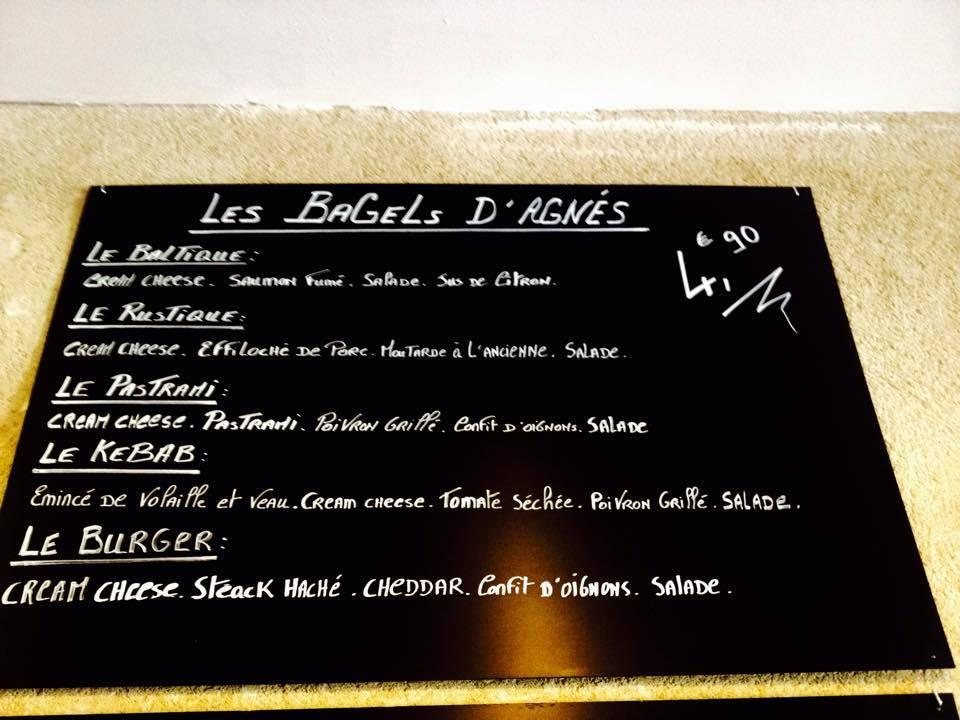 LES BAGELS D'AGNÉS
€ 90
4,
LE BALTIQUE:
CREAM CHEESE. SAUMON FUMÉ. SALADE. SUS DE CITRON.
LE RUSTIQUE:
CREAM CHEESE. EFFILOCHÉ DE PORC. MOUTARDE à L'ANCIENNE. SALADE.
LE PASTRAMI:
CREAM CHEESE. PASTRAMI. POIVRON GRILLÉ. CONFIT D'OIGNONS. SALADE
LE KEBAB:
Emincé DE VOLAILLE et VEAU. CREAM CHEESE. TOMATE SÉCHÉE. POIVRON GRILLÉ. SALADE.
LE BURGER:
CREAM CHEESE. STEACK HACHÉ. CHEDDAR. CONFIT D'OIGNONS. SALADE.